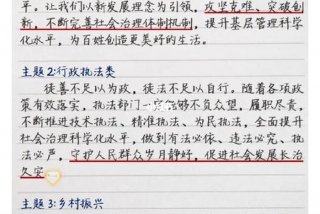 平。让我们以新发展理念为引领，攻坚克难、突破创
新，不断完善社会治理体制机制，提升基层管理科学
化水平，为百姓创造更美好的生活。
主题2:行政执法类
徒善不足以为政，徒法不足以自行。随着各项政
策有效落实，执法部门一定能够不负众望，履职尽责，
不断推进技术执法、精准执法、为民执法，全面提升社
会治理科学化水平，做到有法必依、违法必究、执
法必严，守护人民群众岁月静好，促进社会发展长治
久安
主题3:乡村振兴